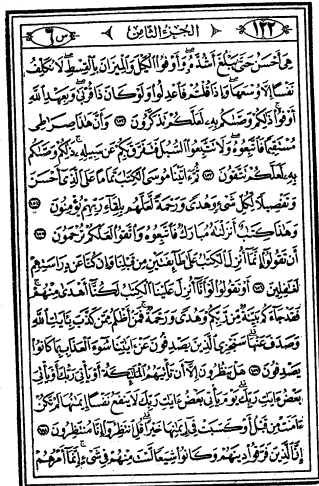 ١٢٢ الجزء الثامن س ٦
هِىَ أَحْسَنُ حَتَّىٰ يَبْلُغَ أَشُدَّهُۥ وَأَوْفُوا۟ الْكَيْلَ وَالْمِيزَانَ بِالْقِسْطِ لَا نُكَلِّفُ
نَفْسًا إِلَّا وُسْعَهَا وَإِذَا قُلْتُمْ فَاعْدِلُوا۟ وَلَوْ كَانَ ذَا قُرْبَىٰ وَبِعَهْدِ اللَّهِ
أَوْفُوا۟ ذَٰلِكُمْ وَصَّىٰكُم بِهِۦ لَعَلَّكُمْ تَذَكَّرُونَ وَأَنَّ هَٰذَا صِرَٰطِى
مُسْتَقِيمًا فَاتَّبِعُوهُ وَلَا تَتَّبِعُوا۟ السُّبُلَ فَتَفَرَّقَ بِكُمْ عَن سَبِيلِهِۦ ذَٰلِكُمْ وَصَّىٰكُم
بِهِۦ لَعَلَّكُمْ تَتَّقُونَ ثُمَّ ءَاتَيْنَا مُوسَى الْكِتَٰبَ تَمَامًا عَلَى الَّذِىٓ أَحْسَنَ
وَتَفْصِيلًا لِّكُلِّ شَىْءٍ وَهُدًى وَرَحْمَةً لَّعَلَّهُم بِلِقَآءِ رَبِّهِمْ يُؤْمِنُونَ
وَهَٰذَا كِتَٰبٌ أَنزَلْنَٰهُ مُبَارَكٌ فَاتَّبِعُوهُ وَاتَّقُوا۟ لَعَلَّكُمْ تُرْحَمُونَ
أَن تَقُولُوٓا۟ إِنَّمَآ أُنزِلَ الْكِتَٰبُ عَلَىٰ طَآئِفَتَيْنِ مِن قَبْلِنَا وَإِن كُنَّا عَن دِرَاسَتِهِمْ
لَغَٰفِلِينَ أَوْ تَقُولُوا۟ لَوْ أَنَّآ أُنزِلَ عَلَيْنَا الْكِتَٰبُ لَكُنَّآ أَهْدَىٰ مِنْهُمْ
فَقَدْ جَآءَكُم بَيِّنَةٌ مِّن رَّبِّكُمْ وَهُدًى وَرَحْمَةٌ فَمَنْ أَظْلَمُ مِمَّن كَذَّبَ بِـَٔايَٰتِ اللَّهِ
وَصَدَفَ عَنْهَا سَنَجْزِى الَّذِينَ يَصْدِفُونَ عَنْ ءَايَٰتِنَا سُوٓءَ الْعَذَابِ بِمَا كَانُوا۟
يَصْدِفُونَ هَلْ يَنظُرُونَ إِلَّآ أَن تَأْتِيَهُمُ الْمَلَٰٓئِكَةُ أَوْ يَأْتِىَ رَبُّكَ أَوْ يَأْتِىَ
بَعْضُ ءَايَٰتِ رَبِّكَ يَوْمَ يَأْتِى بَعْضُ ءَايَٰتِ رَبِّكَ لَا يَنفَعُ نَفْسًا إِيمَٰنُهَا لَمْ تَكُنْ
ءَامَنَتْ مِن قَبْلُ أَوْ كَسَبَتْ فِىٓ إِيمَٰنِهَا خَيْرًا قُلِ انتَظِرُوٓا۟ إِنَّا مُنتَظِرُونَ
إِنَّ الَّذِينَ فَرَّقُوا۟ دِينَهُمْ وَكَانُوا۟ شِيَعًا لَّسْتَ مِنْهُمْ فِى شَىْءٍ إِنَّمَآ أَمْرُهُمْ